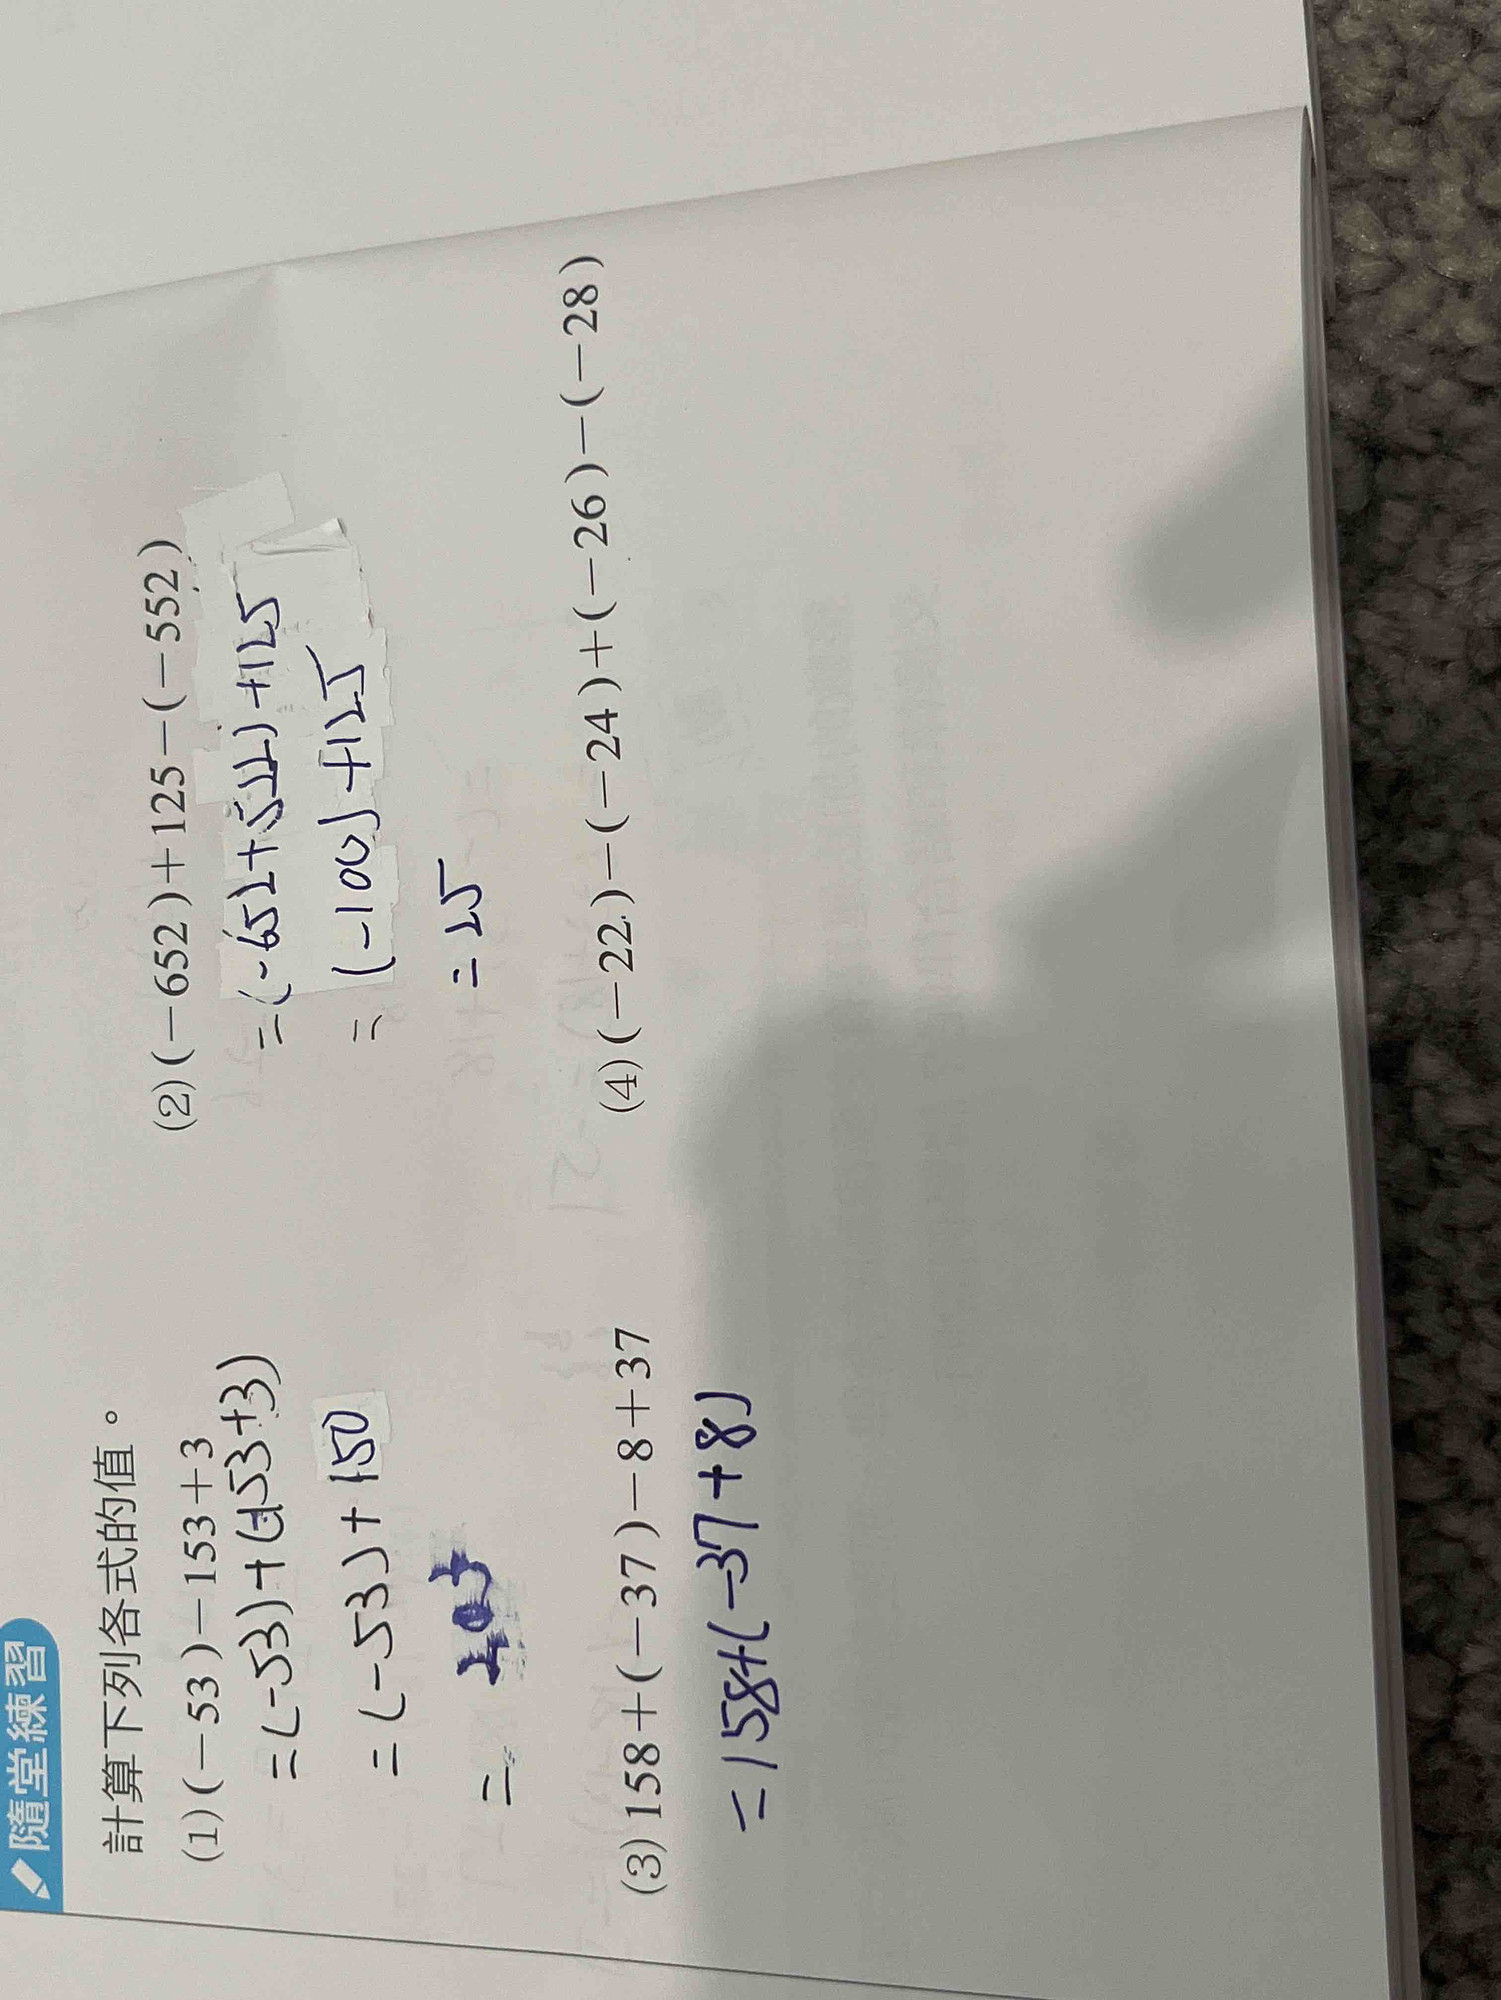 隨堂練習
計算下列各式的值。
(1)(-53)-153+3
=(-53)+(-153+3)
=(-53)+150
= 203
(2)(-652)+125-(-552)
=(-652+522)+125
= (-100)+125
=25
(3)158+(-37)-8+37
=158+(-37+8)
(4)(-22)-(-24)+(-26)-(-28)